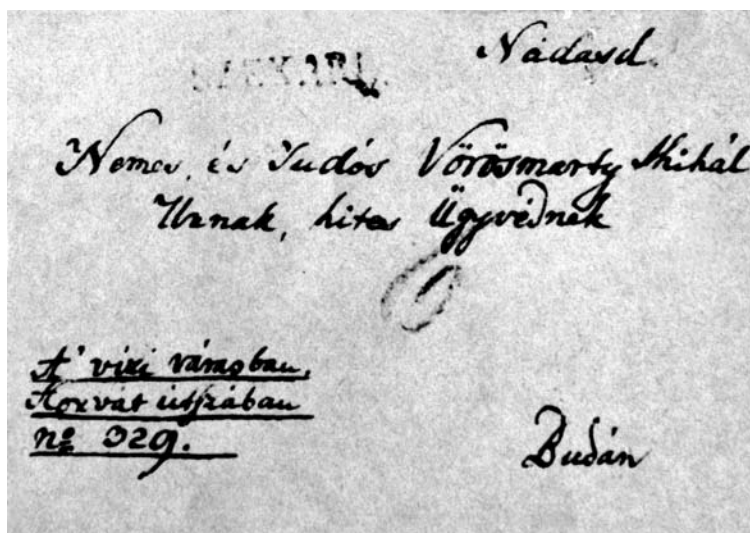 Nádasd
Nemes, és Tudós Vörösmarty Mihál
Urnak, hites Ügyvédnek
A' vizi városban,
Horvát útszában
nº 329.
Budán